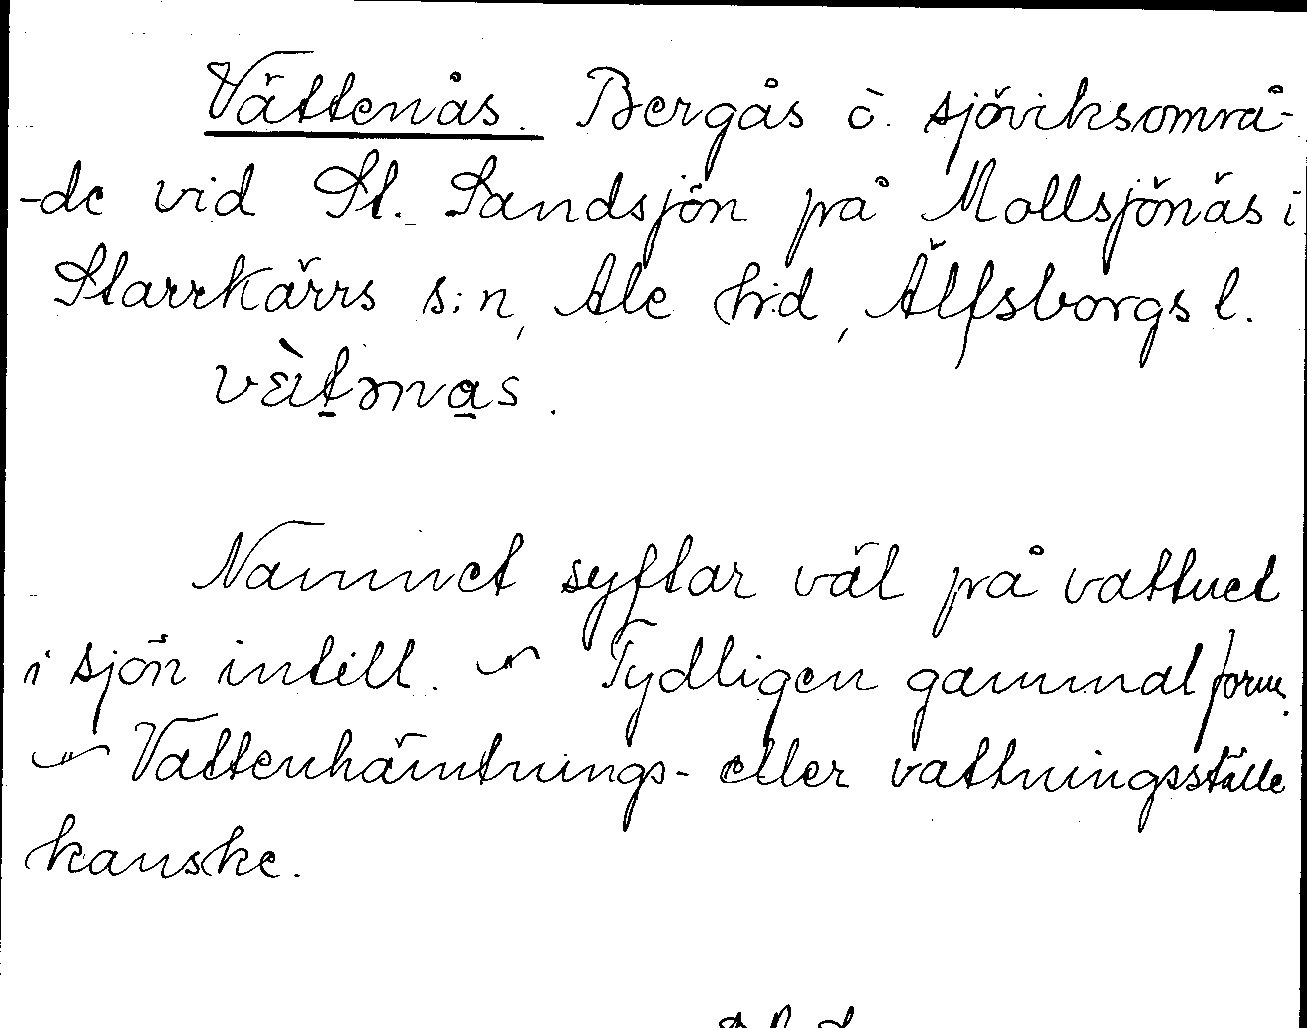 Vättenås. Bergås ö. sjöviksområ-
-de vid St. Sandsjön på Mollsjönäs i
Starrkärrs s:n, Ale h:d, Älfsborgs l.
vèitənas.
Namnet syftar väl på vattnet
i sjön intill. ~ Tydligen gammal form.
~ Vattenhämtnings- eller vattningsställe
kanske.